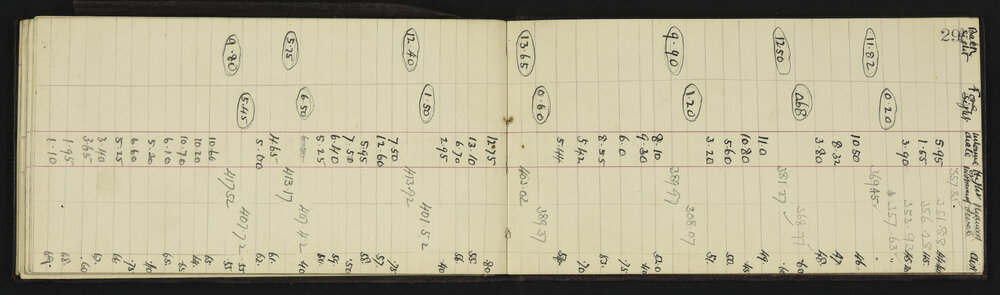 29
Back Sight Fore Sight
357.88
5.95 351.58
1.55 356.28 45.
3.90 353.93
11.82 0.20 369.45 357.63
10.50 46.
8.32 47.
3.80 48.
12.50 0.68 381.27 368.77 .60
11.0 49.
10.80 50
5.60 .45
3.20 51.
9.90 1.20 389.97 308.07
8.10 52.0
9.30 .40
6.0 .75
8.35 53.
5.42 .70
5.44 54.
13.65 0.60 403.02 389.37
12.75 .80
13.10 55.
6.70 56
2.95 .40
12.40 1.50 413.92 401.52
7.50 .75
12.60 57.
5.45 58
7.50 .50
6.40 59
5.25 .80
5.75 6.50 413.17 407.42 .40
4.65 61.
5.00 62.
9.80 5.45 417.52 407.72 .55
10.66
10.20
10.70
6.10 .65
5.20
6.60 .75
5.25 66
3.40 67.
3.65 .60
1.45 68.
1.10 69.